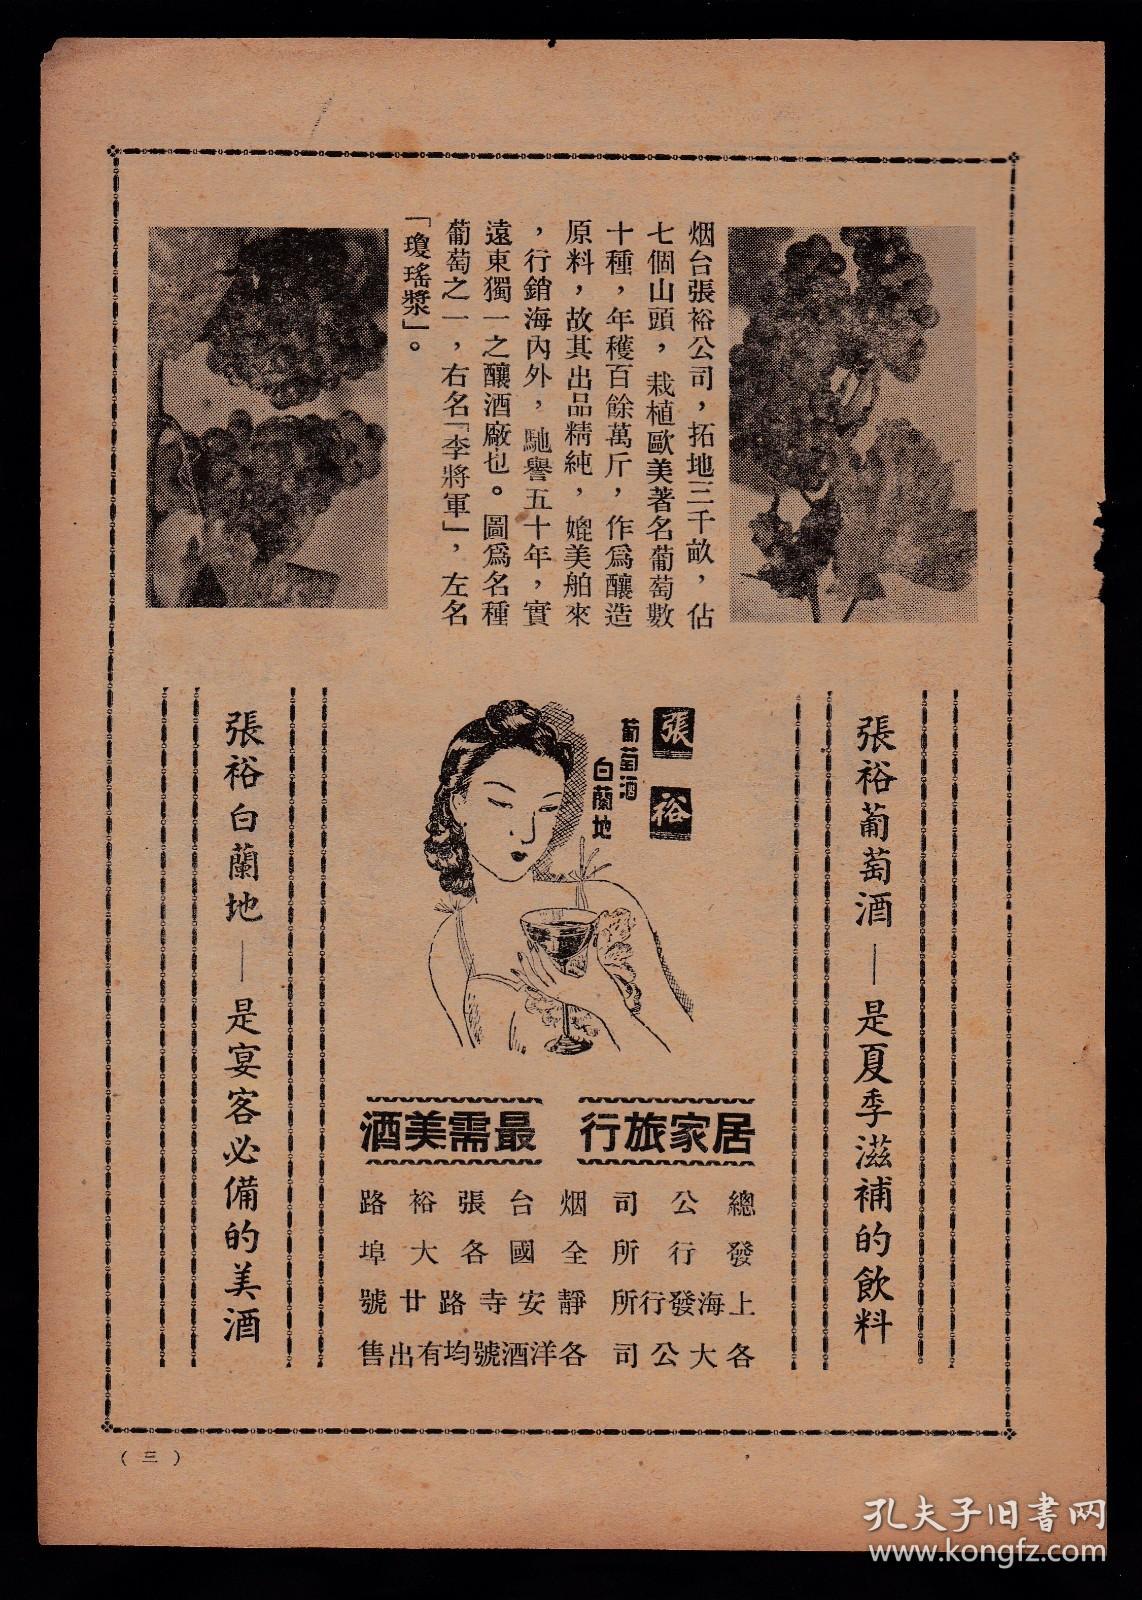 烟台張裕公司，拓地三千畝，佔
七個山頭，栽植歐美著名葡萄數
十種，年穫百餘萬斤，作爲釀造
原料，故其出品精純，媲美舶來
，行銷海內外，馳譽五十年，實
遠東獨一之釀酒廠也。圖爲名種
葡萄之一，右名「李將軍」，左名
「瓊瑤漿」。
張裕葡萄酒—是夏季滋補的飲料
張裕
葡萄酒
白蘭地
居家旅行 最需美酒
總公司 烟台張裕路
發行所 全國各大埠
上海發行所 靜安寺路廿號
各大公司 各洋酒號均有出售
張裕白蘭地—是宴客必備的美酒
（三）
孔夫子旧书网
www.kongfz.com